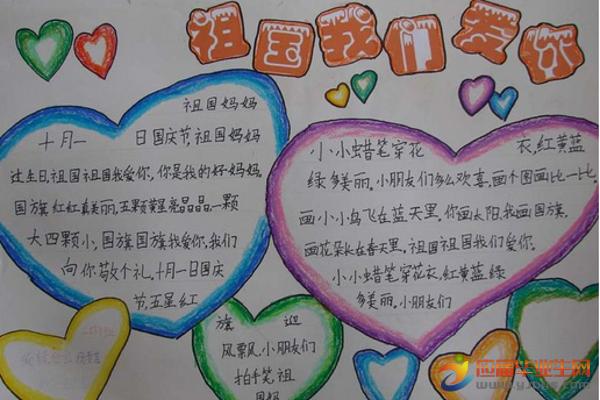 祖国我们爱你
祖国妈妈
十月一 日国庆节,祖国妈妈
过生日,祖国祖国我爱你,你是我的好妈妈.
国旗红红真美丽,五颗黄星亮晶晶,一颗
大四颗小,国旗国旗我爱你,我们
向你敬个礼,十月一日国庆
节,五星红
旗 迎
风飘飘,小朋友们
拍手笑,祖
国妈
小小蜡笔穿花 衣,红黄蓝
绿多美丽.小朋友们多么欢喜,画个图画比一比.
画小小鸟飞在蓝天里,你画太阳,我画国旗.
画花朵长在春天里.祖国祖国我们爱你.
小小蜡笔穿花衣,红黄蓝绿
多美丽.小朋友们
应届毕业生网
www.yjbys.com